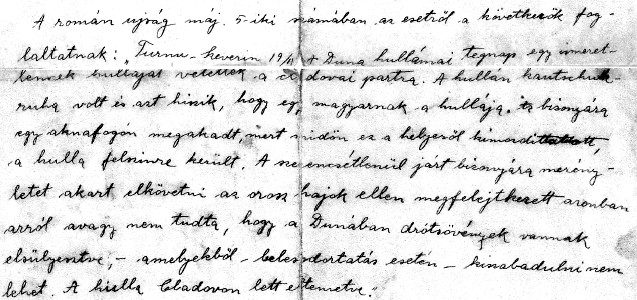 A román ujság máj. 5-iki számában az esetről a következők fog-
laltatnak: „Turnu-Severin 19/ A Duna hullámai tegnap egy ismeret-
lennek hulláját vetették a cladovai partra. A hullán kautschuk-
ruha volt és azt hiszik, hogy egy magyarnak a hullája. Ez bizonyára
egy aknafogón megakadt, mert midőn ez a helyéről kimozdíttatott,
a hulla felszinre került. A szerencsétlenül járt bizonyára merény-
letet akart elkövetni az orosz hajók ellen megfelejtkezett azonban
arról avagy nem tudta, hogy a Dunában drótsövények vannak
elsülyesztve, – amelyekből – belesodortatás esetén – kiszabadulni nem
lehet. A hulla Cladovon lett eltemetve."